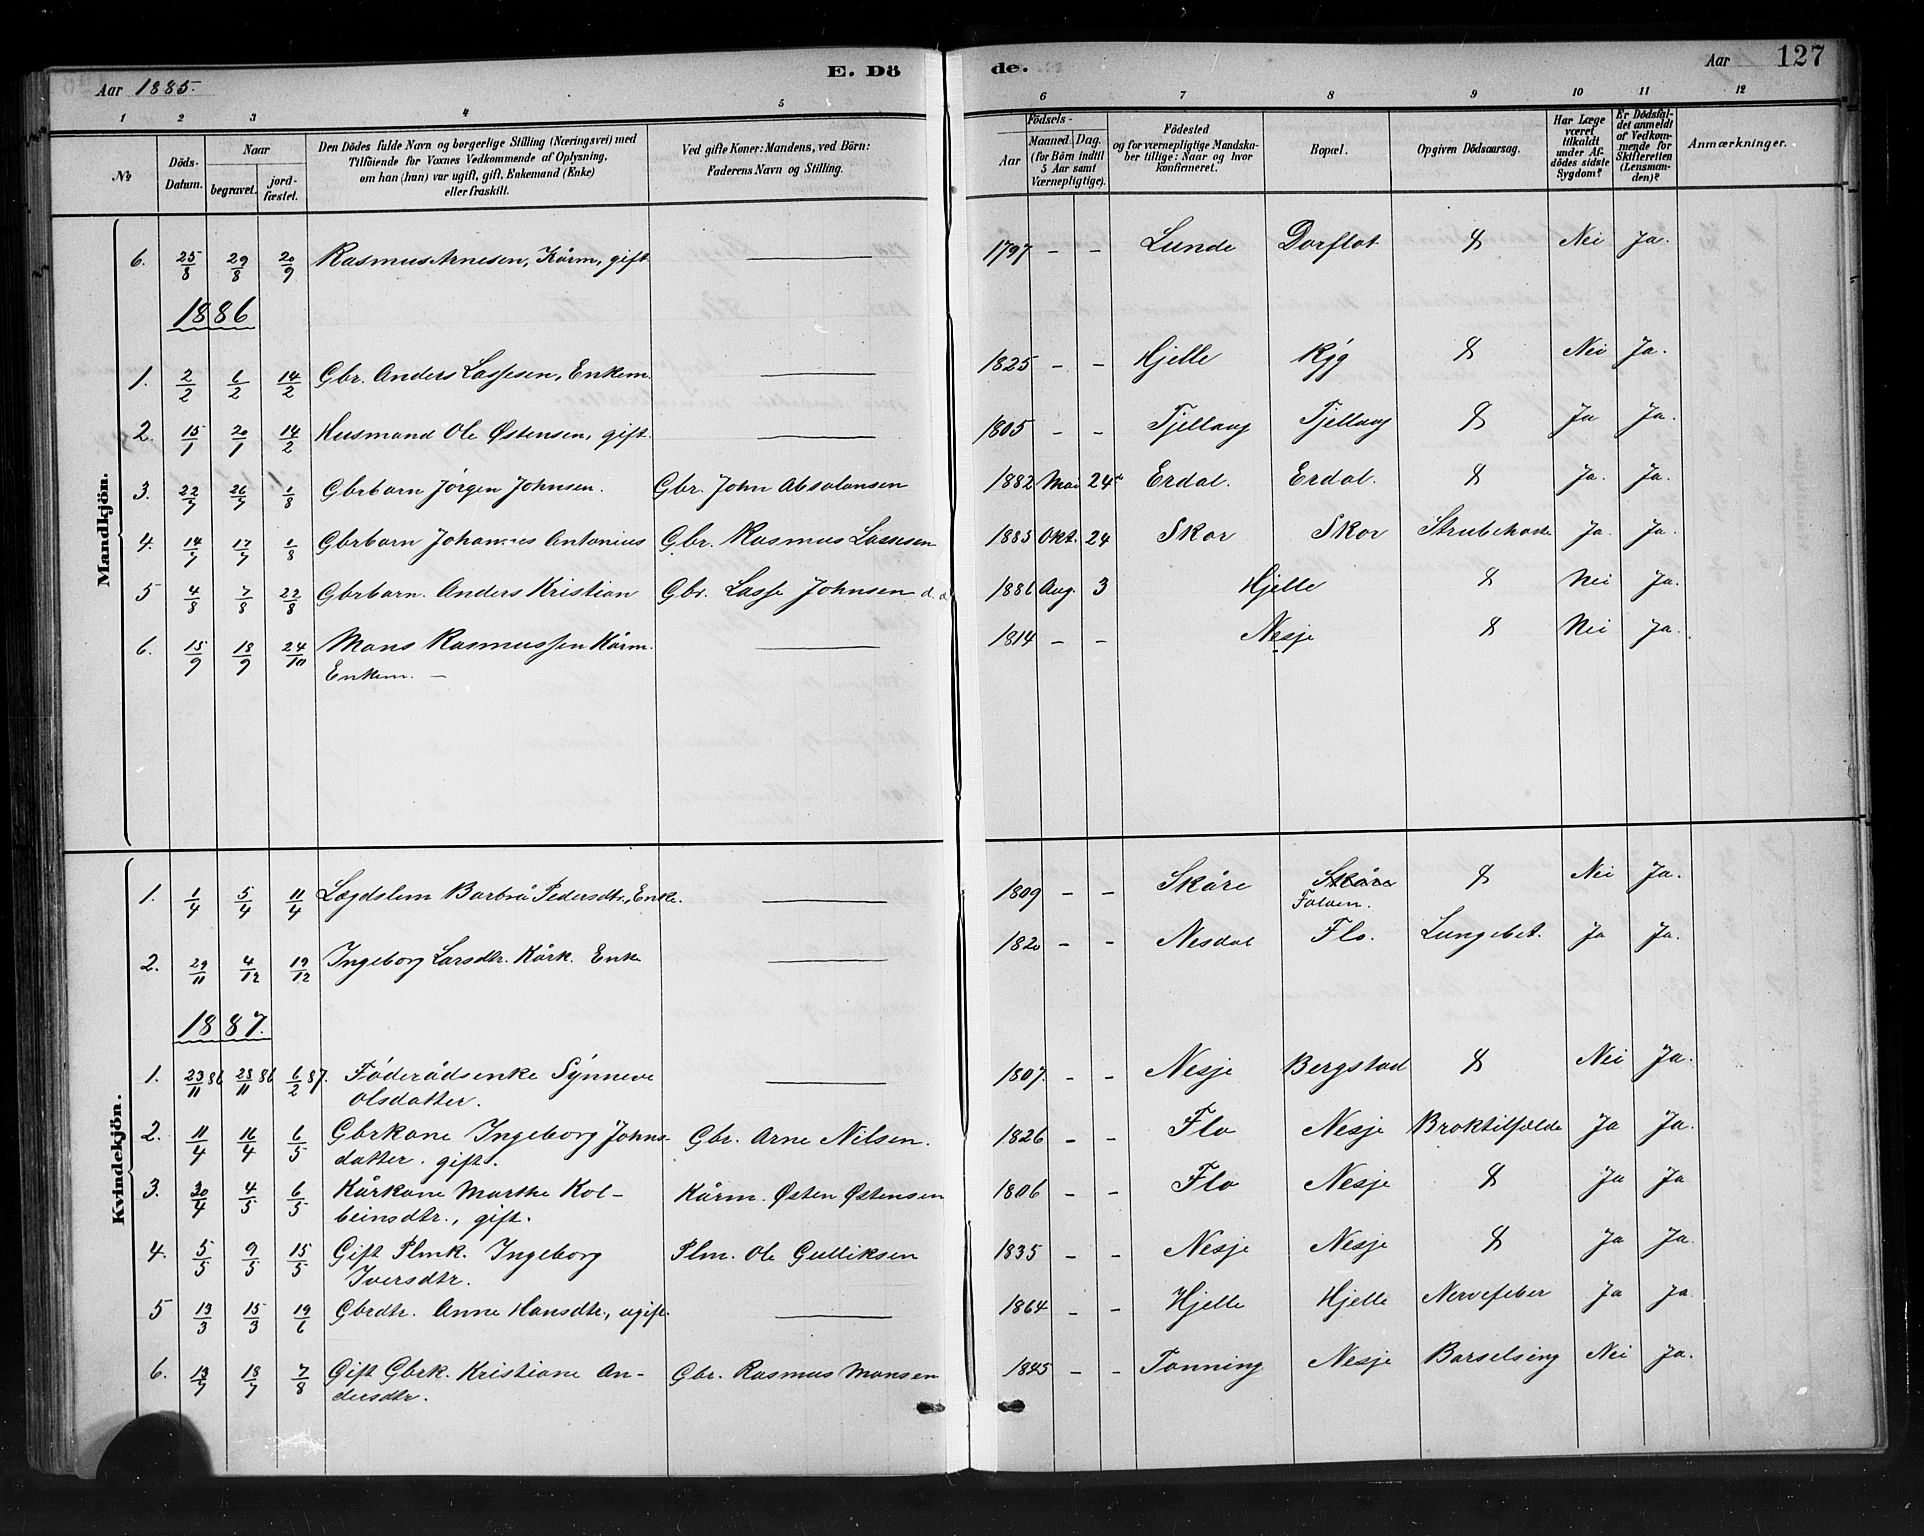 Aar 1885.
E. Dö
de.
Aar
127
1 2 3 4 5 6 7 8 9 10 11 12
No
Döds-Datum.
Naar
begravet.
jordfæstet.
Den Dödes fulde Navn og borgerlige Stilling (Næringsvei) med
Tilföiende for Voxnes Vedkommende af Oplysning,
om han (hun) var ugift, gift, Enkemand (Enke)
eller fraskilt.
Ved gifte Koner: Mandens, ved Börn:
Faderens Navn og Stilling.
Födsels-
Aar
Maaned. Dag.
(for Börn indtil
5 Aar samt
Værnepligtige).
Födested
og for værnepligtige Mandska-
ber tillige: Naar og hvor
konfirmeret.
Bopæl.
Opgiven Dödsaarsag.
Har Læge
været
tilkaldt
under Af-
dödes sidste
Sygdom?
Er Dödsfal-
det anmeldt
af Vedkom-
mende for
Skifteretten
(Lensman-
den)?
Anmærkninger.
Mandkjön.
6. 25/8 29/8 20/9 Rasmus Arnesen, Kårm, gift — 1797 - - Lunde Dorflot Nei Ja.
1886
1. 2/2 6/2 14/2 Gbr. Anders Lassesen, Enkem. — 1825 - - Hjelle Ryg Nei Ja.
2. 15/1 20/1 14/2 Husmand Ole Østensen, gift. — 1805 - - Tjellaug Tjellaug Ja Ja.
3. 22/7 26/7 1/8 Gbrbarn Jørgen Johnsen. Gbr. John Absalonsen 1882 Mai 24 Erdal. Erdal. Ja. Ja.
4. 14/7 17/7 1/8 Gbrbarn Johannes Antonius Gbr. Rasmus Lassesen 1885 Okt. 24 Skor Skor Strubehoste Ja. Ja.
5 4/8 7/8 22/8 Gbrbarn. Anders Kristian Gbr. Lasse Johnsen 1886 Aug. 3 Hjelle Nei Ja.
6. 15/9 18/9 24/10 Mons Rasmussen Kårm. — 1814 - - Nesje Nei Ja.
Enkem. —
Kvindekjön.
1. 1/4 5/4 11/4 Lægdslem Barbra Pedersdtr., Enke. — 1809 - - Skåre Skåre Nei Ja.
Folven.
2. 29/11 4/12 19/12 Ingeborg Larsdtr. Kårk. Enke — 1820 - - Nesdal Flo. Lungebet. Ja Ja.
1887.
1. 23/11 86 28/11 86 6/2 87. Føderådsenke Synneve — 1807. - - Nesje Bergstad Nei Ja.
Olsdatter.
2. 11/4 16/4 6/5 Gbrkone Ingeborg Johns- Gbr. Arne Nilsen. 1826 - - Flo Nesje Broktilfælde Ja Ja.
datter. gift.
3. 30/4 4/5 6/5 Kårkone Marthe Kol- Kårm. Østen Østensen 1806 - - Flo Nesje Ja Ja
beinsdtr., gift.
4. 5/5 9/5 15/5 Gift Plmk. Ingeborg Plm. Ole Gulliksen 1835 - - Nesje Nesje Ja Ja.
Iversdtr.
5 13/3 15/3 19/6 Gbrdtr. Anne Hansdtr., ugift. — 1864 - - Hjelle Hjelle Nervefeber Ja Ja.
6. 13/7 18/7 7/8 Gift Gbrk. Kristiane An- Gbr. Rasmus Monsen 1845 - - Tonning Nesje Barselseng Nei Ja.
dersdtr.